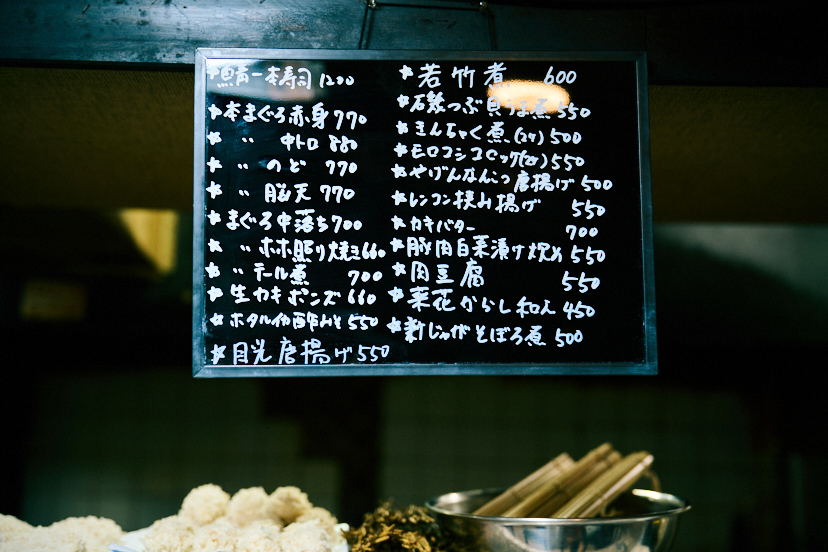 ☆鯖一本寿司 1200
☆本まぐろ赤身 770
☆ 〃 中トロ 880
☆ 〃 のど 770
☆ 〃 脳天 770
☆まぐろ中落ち 700
☆ 〃 ホホ照り焼き 660
☆ 〃 テール煮 700
☆生カキポンズ 660
☆ホタルイカ酢みそ 550
☆目光唐揚げ 550
☆若竹煮 600
☆石鯛つぶ貝うま煮 550
☆きんちゃく煮(2ケ) 500
☆モロコシコロッケ(2ケ) 550
☆やげんなんこつ唐揚げ 500
☆レンコン挟み揚げ 550
☆カキバター 700
☆豚肉白菜漬け炒め 550
☆肉豆腐 550
☆菜花からし和え 450
☆新じゃがそぼろ煮 500